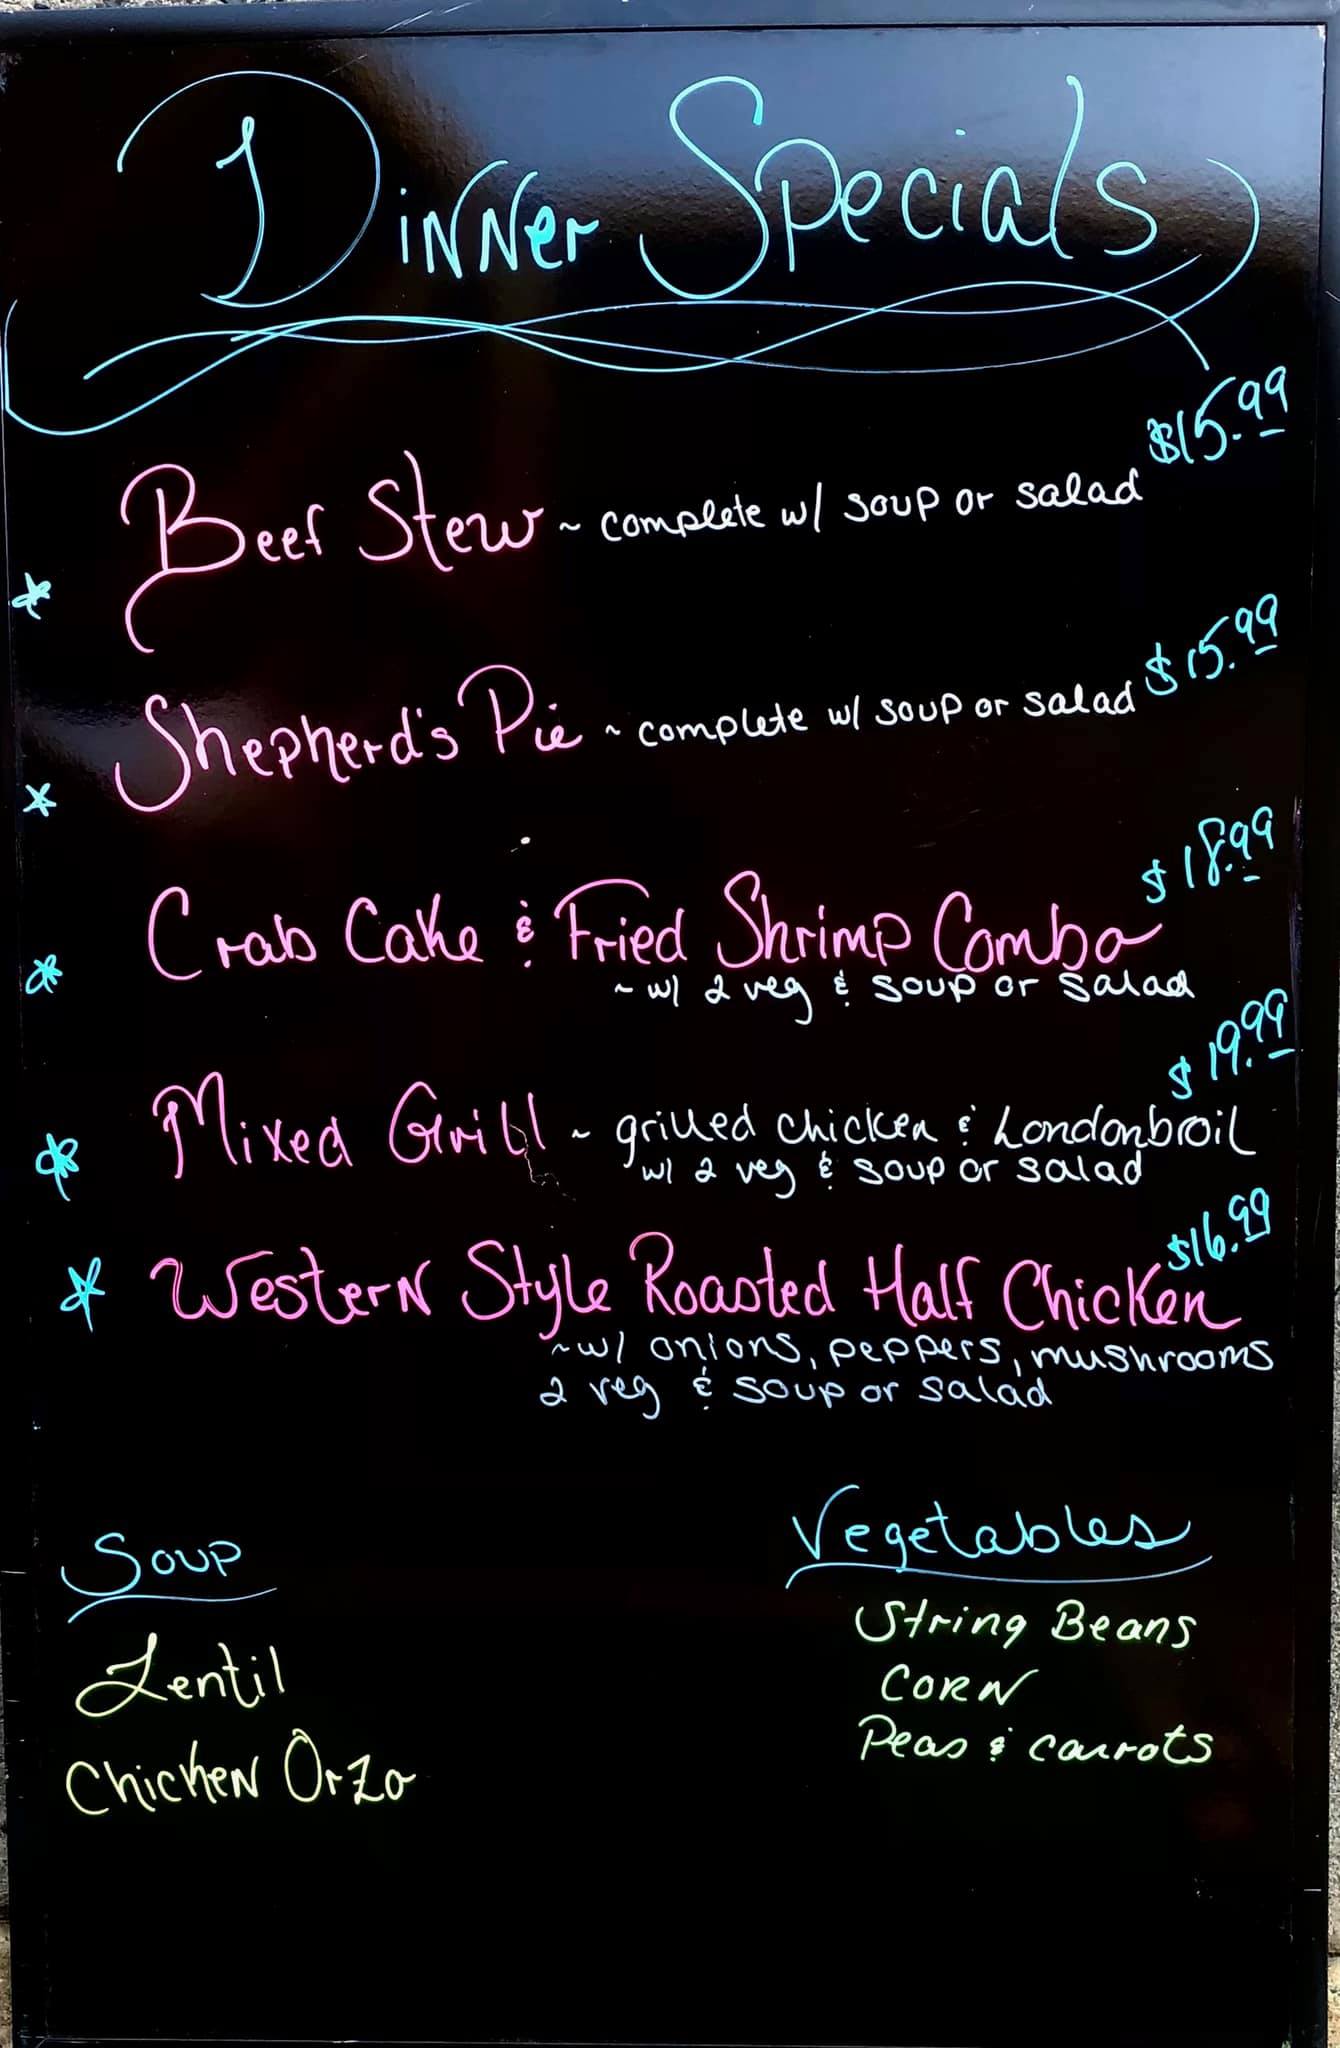 Dinner Specials
$15.99
Beef Stew ~ complete w/ soup or salad
$15.99
Shepherd's Pie ~ complete w/ soup or salad
$18.99
Crab Cake & Fried Shrimp Combo
~ w/ 2 veg & soup or salad
$19.99
Mixed Grill ~ grilled chicken & Londonbroil
w/ 2 veg & soup or salad
$16.99
Western Style Roasted Half Chicken
~ w/ onions, peppers, mushrooms
2 veg & soup or salad
Soup
Lentil
Chicken Orzo
Vegetables
String Beans
Corn
Peas & carrots